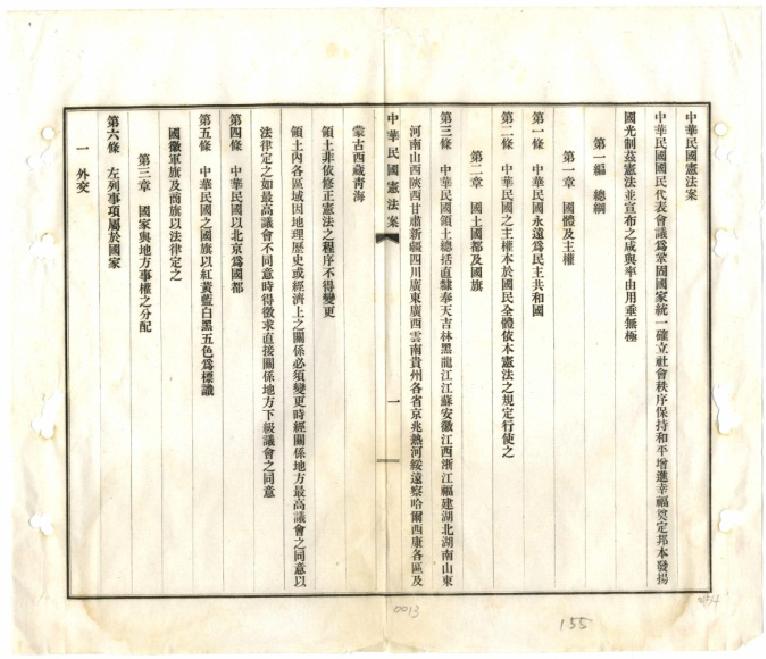 中華民國憲法案
中華民國國民代表會議爲鞏固國家統一確立社會秩序保持和平增進幸福奠定邦本發揚
國光制茲憲法並宣布之咸與率由用垂無極
第一編　總綱
第一章　國體及主權
第一條　中華民國永遠爲民主共和國
第二條　中華民國之主權本於國民全體依本憲法之規定行使之
第二章　國土國都及國旗
第三條　中華民國領土總括直隸奉天吉林黑龍江江蘇安徽江西浙江福建湖北湖南山東
河南山西陝西甘肅新疆四川廣東廣西雲南貴州各省京兆熱河綏遠察哈爾西康各區及
中華民國憲法案
一
蒙古西藏靑海
領土非依修正憲法之程序不得變更
領土內各區域因地理歷史或經濟上之關係必須變更時經關係地方最高議會之同意以
法律定之如最高議會不同意時得徵求直接關係地方下級議會之同意
第四條　中華民國以北京爲國都
第五條　中華民國之國旗以紅黃藍白黑五色爲標識
國徽軍旗及商旗以法律定之
第三章　國家與地方事權之分配
第六條　左列事項屬於國家
一　外交
0013
155